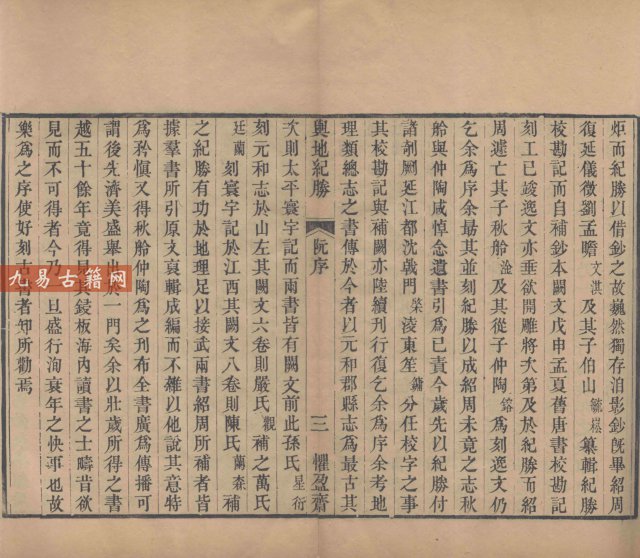 炬而以借鈔之故巍然獨存洎影鈔旣畢紹周
復延儀徵劉孟瞻文淇及其子伯山毓崧纂輯紀勝
校勘記而自補鈔本闕文戊申孟夏舊唐書校勘記
刻工已竣逸文亦垂欲開雕將次第及於紀勝而紹
周遽亡其子秋舲淦及其從子仲陶鎔為刻逸文仍
乞余為序余最其並刻紀勝以成紹周未竟之志秋
舲與仲陶咸悼念遺書引為已責今歲先以紀勝付
諸剞劂延江都沈戟門棨淩東笙鏞分任校字之事
其校勘記與補闕亦陸續刊行復乞余為序余考地
理類總志之書傳於今者以元和郡縣志為最古其
輿地紀勝 阮序 三 懼盈齋
次則太平寰宇記而兩書皆有闕文前此孫氏星衍
刻元和志於山左其闕文六卷則嚴氏觀補之萬氏
廷蘭刻寰宇記於江西其闕文八卷則陳氏蘭森補
之紀勝有功於地理足以接武兩書紹周所補者皆
據羣書所引原文裒輯成編而不雜以他說其意特
為矜慎又得秋舲仲陶為之刊布全書廣為傳播可
謂後先濟美盛舉出於一門矣余以壯歲所得之書
越五十餘年竟得見其鋟板海內讀書之士疇昔欲
見而不可得者今乃一旦盛行洵衰年之快事也故
樂為之序使好刻古書者知所勸焉
九易古籍网